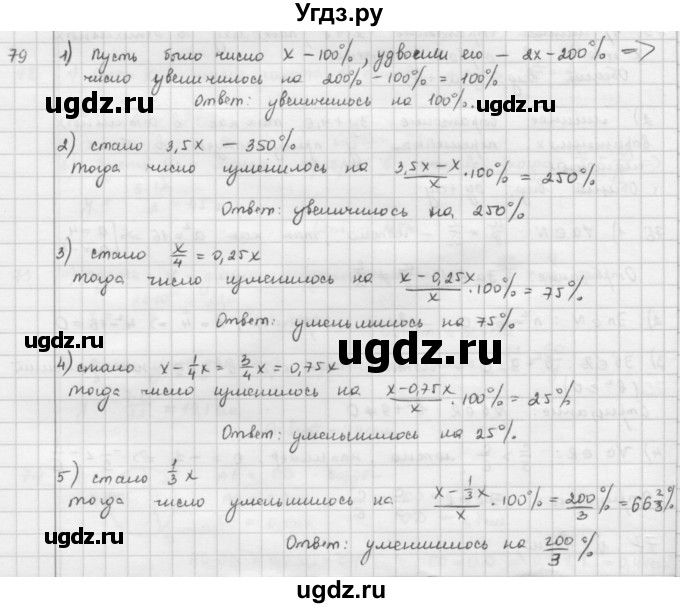 Угдз.ру
79 1) Пусть было число x – 100%, удвоили его – 2x – 200% =>
число увеличилось на 200% – 100% = 100%
Ответ: увеличилось на 100%.
ugdz.ru ugdz.ru
2) стало 3,5x – 350%
Тогда число изменилось на (3,5x – x)/x · 100% = 250%
ugdz.ru
Ответ: увеличилось на 250%
3) стало x/4 = 0,25x
тогда число изменилось на (x – 0,25x)/x · 100% = 75%
ugdz.ru ugdz.ru
Ответ: уменьшилось на 75%.
ugdz.ru
4) стало x – 1/4 x = 3/4 x = 0,75x
тогда число изменилось на (x – 0,75x)/x · 100% = 25%
ugdz.ru
Ответ: уменьшилось на 25%.
5) стало 1/3 x
тогда число уменьшилось на (x – 1/3 x)/x · 100% = 200/3 % = 66 2/3 %
ugdz.ru
Ответ: уменшилось на 200/3 %
ugdz.ru ugdz.ru